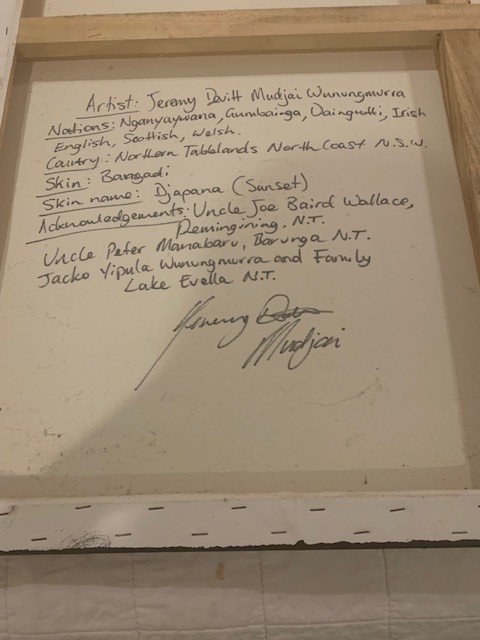 Artist: Jeremy Devitt Mudjai Wunungmurra
Nations: Nganyaywana, Gumbainga, Daingutti, Irish
English, Scottish, Welsh.
Country: Northern Tablelands North Coast N.S.W.
Skin: Baragadi
Skin name: Djapana (Sunset)
Acknowledgements: Uncle Joe Baird Wallace,
Remingining, N.T.
Uncle Peter Manabaru, Barunga N.T.
Jacko Yipula Wunungmurra and Family
Lake Evella N.T.
Jeremy
Mudjai